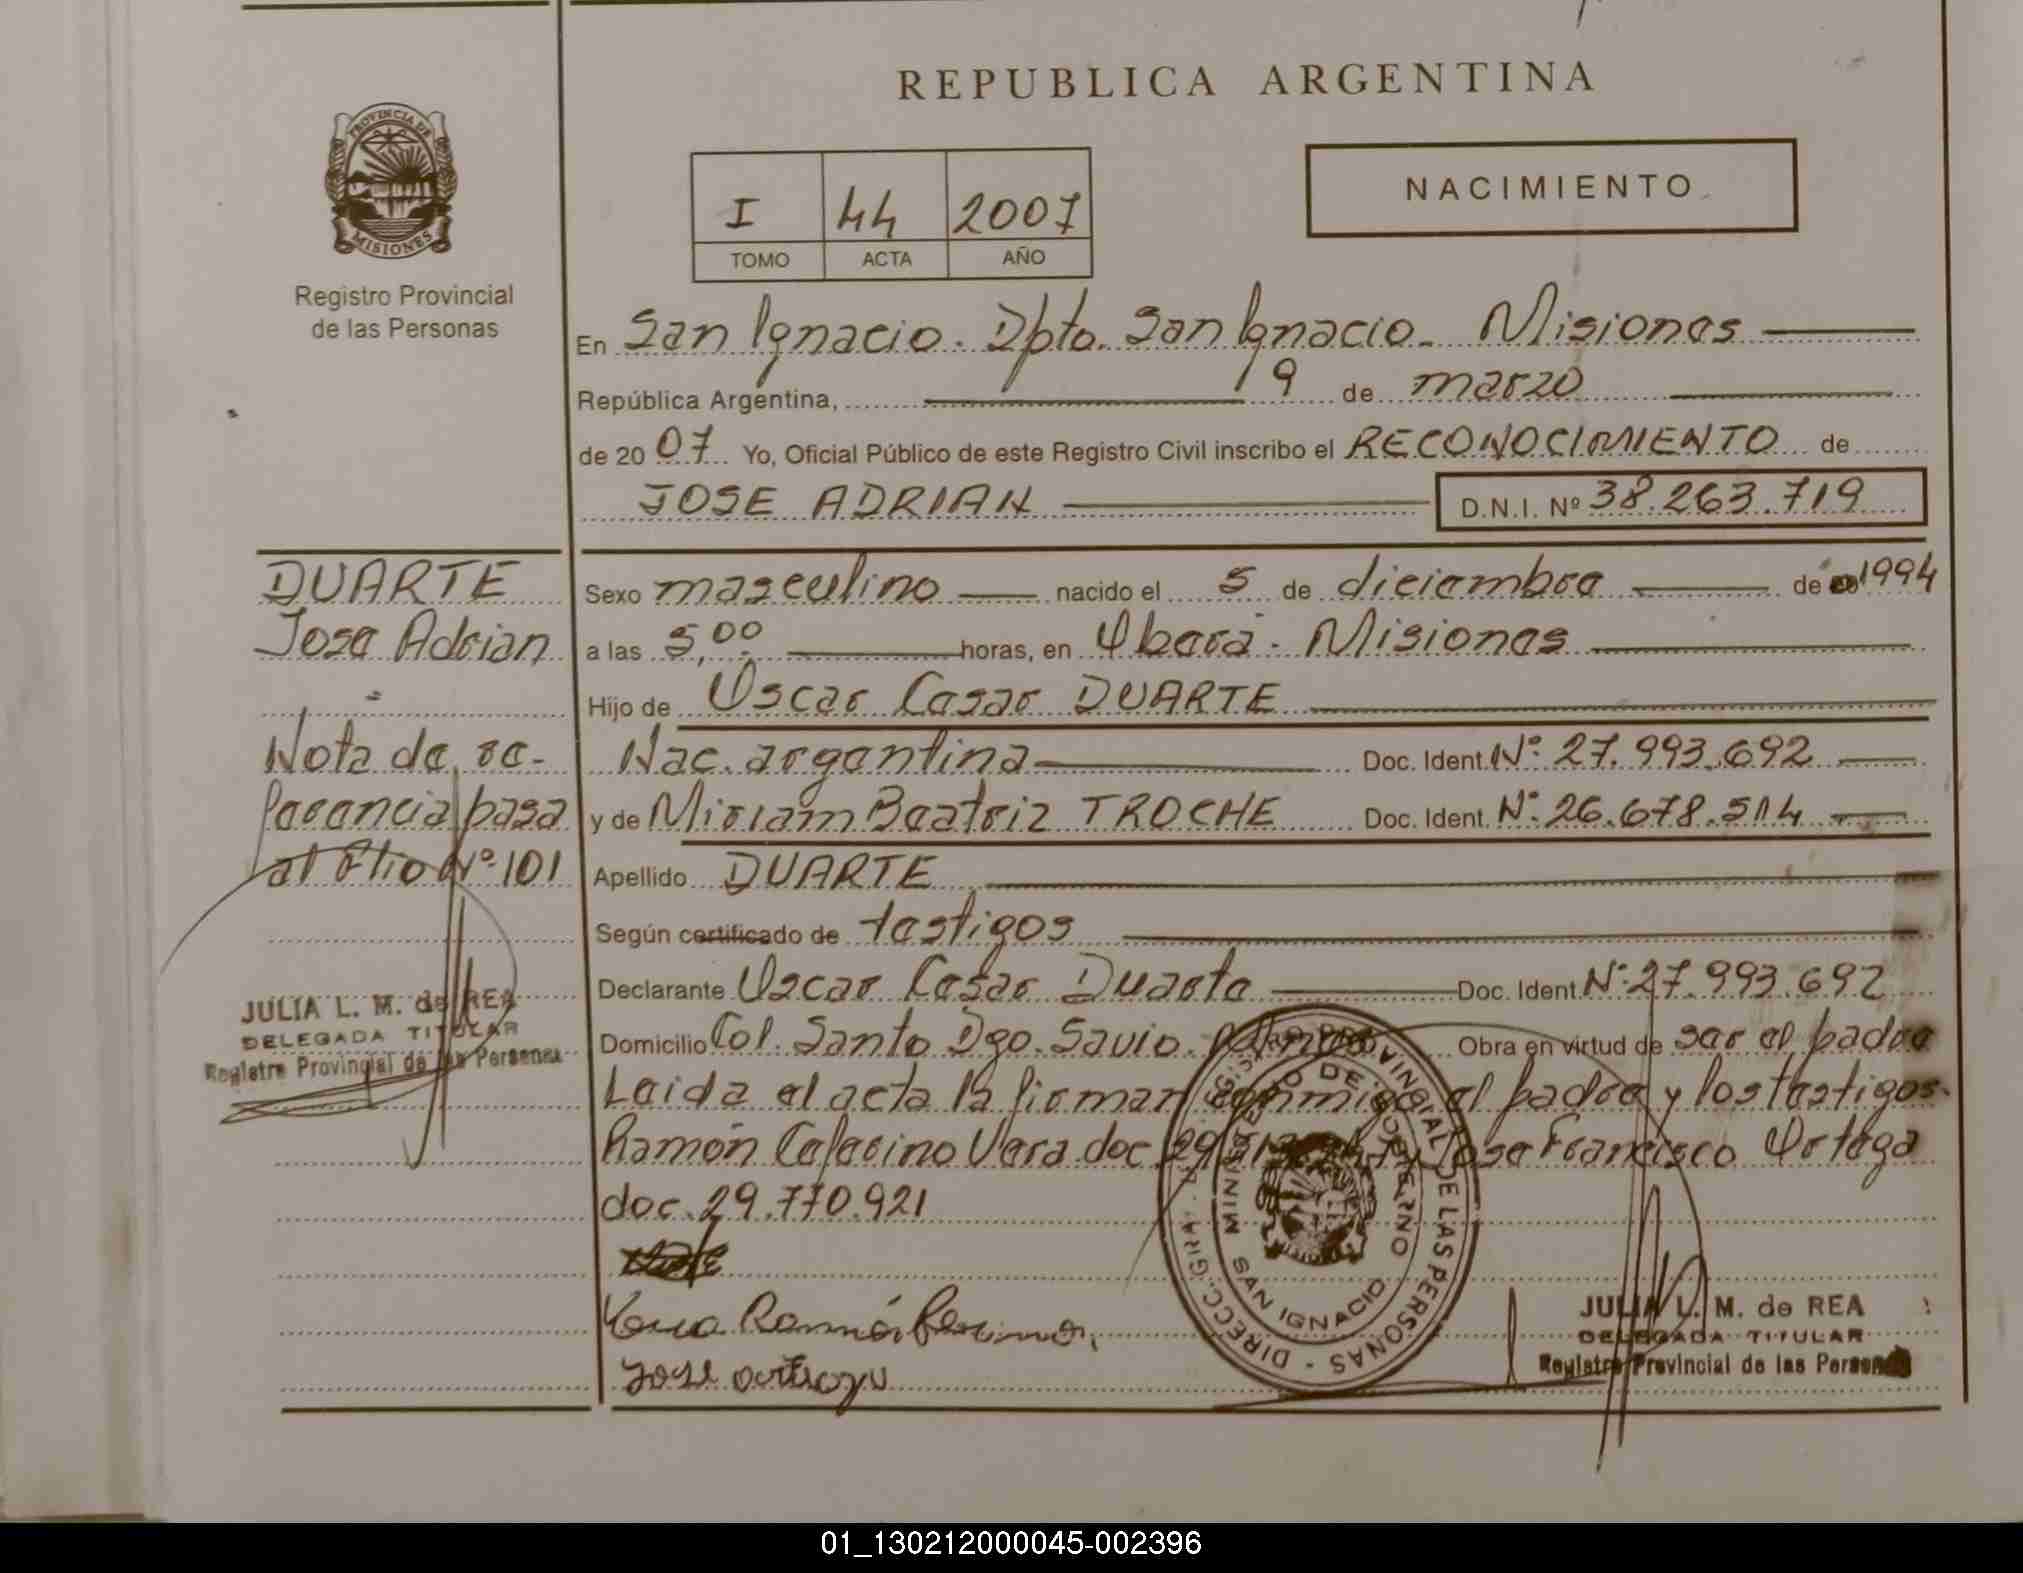 REPUBLICA ARGENTINA
PROVINCIA DE
MISIONES
Registro Provincial
de las Personas
NACIMIENTO
I 44 2007
TOMO ACTA AÑO
En San Ignacio. Dpto. San Ignacio. Misiones
República Argentina, 9 de marzo
de 2007 Yo, Oficial Público de este Registro Civil inscribo el RECONOCIMIENTO de
JOSE ADRIAN D.N.I. Nº 38.263.719
DUARTE
Jose Adrian
Nota de re-
ferencia pasa
al Flio Nº 101
JULIA L. M. de REA
DELEGADA TITULAR
Registro Provincial de las Personas
Sexo masculino nacido el 5 de diciembre de 1994
a las 5,00 horas, en Oberá - Misiones
Hijo de Oscar Cesar DUARTE
Nac. argentina Doc. Ident. Nº 27.993.692
y de Miriam Beatriz TROCHE Doc. Ident. Nº 26.678.514
Apellido DUARTE
Según certificado de testigos
Declarante Oscar Cesar Duarte Doc. Ident. Nº 27.993.692
Domicilio Col. Santo Dgo. Savio. Obra en virtud de ser el padre
Leida el acta la firman conmigo el padre y los testigos
Ramón Ceferino Vera doc. Jose Francisco Ortega
doc. 29.770.921
DIRECC. GRAL. REGISTRO PROVINCIAL DE LAS PERSONAS
MINISTERIO DE GOBIERNO
SAN IGNACIO
JULIA L. M. de REA
DELEGADA TITULAR
Registro Provincial de las Personas
01_130212000045-002396